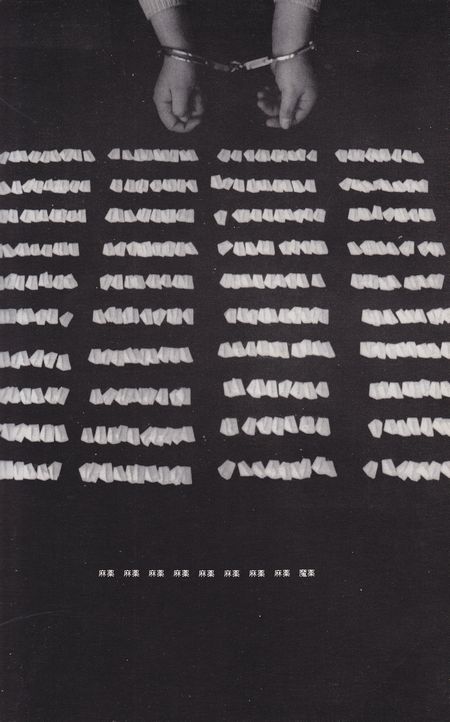 麻薬 麻薬 麻薬 麻薬 麻薬 麻薬 麻薬 麻薬 魔薬